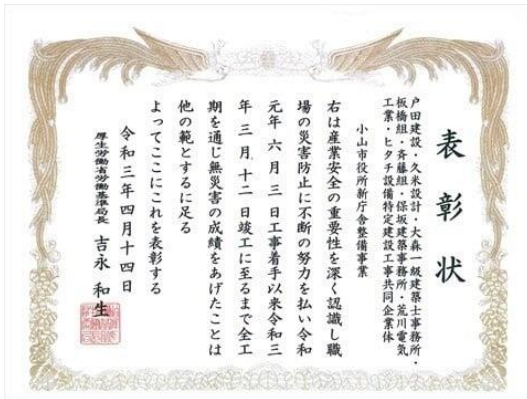 表彰状
戸田建設・久米設計・大森一級建築士事務所・
板橋組・斉藤組・保坂建築事務所・荒川電気
工業・ヒタチ設備特定建設工事共同企業体
小山市役所新庁舎整備事業
右は産業安全の重要性を深く認識し職
場の災害防止に不断の努力を払い令和
元年六月三日工事着手以来令和三
年三月十二日竣工に至るまで全工
期を通じ無災害の成績をあげたことは
他の範とするに足る
よってここにこれを表彰する
令和三年四月十四日
厚生労働省労働基準局長 吉永和生